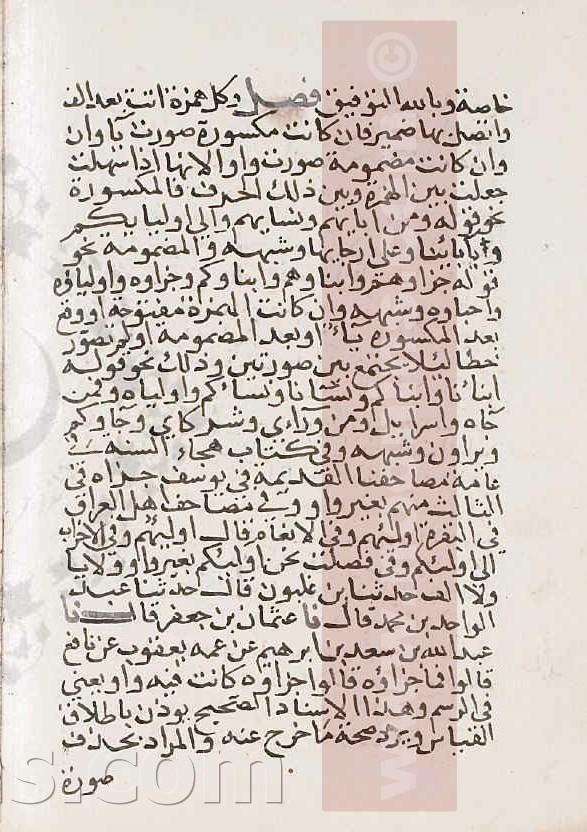 خاصة وبالله التوفيق فصل وكل همزة اتت بعد الف
واتصل بها ضمير فان كانت مكسورة صورت يآ وان
وان كانت مضمومة صورت واوا لانها اذا سهلت
جعلت بين الهمزة وبين ذلك الحرف فالمكسورة
نحو قوله ومن ابايهم ونسايهم والى اوليايكم
وبابائنا وعلى ارجايها وشبهه والمضمومة نحو
قوله جزاوهم وابناوهم وابناوكم وجزاوه واولياؤه
واحباوه وشبهه وان كانت الهمزة مفتوحة او وقع
بعد المكسورة يآ او بعد المضمومة او لم تصور
خطا ليلا يجتمع بين صورتين وذلك نحو قوله
ابنانا وابناكم ونسانا ونساكم واولياه وفمن
جاه واسرايل ومن وراءي وشركاي وجاوكم
ويراون وشبهه وفي كتاب هجاء السنة
عامة مصاحفنا القديمة في يوسف جزاه في
الثلاث منهم بغير واو وفي مصاحف اهل العراق
في البقرة اوليهم وفي الانعام قال اوليهم وفي الاحزاب
الى اوليكم وفي فصلت نحن اوليكم بغير واو ولا يا
ولا الف حدثنا بن غلبون قال حدثنا عبد
الواحد بن محمد قال نا عثمان بن جعفر قال نا
عبد الله بن سعد بن ابرهيم عن عمه يعقوب عن نافع
قالوا فما جزاؤه قالوا جزاوه كانت فيه واو يعني
في الرسم وهذا الاسناد الصحيح يوذن باطلاق
القياس ويرد صحة ما خرج عنه والمراد بحذف
صورة
ns.com